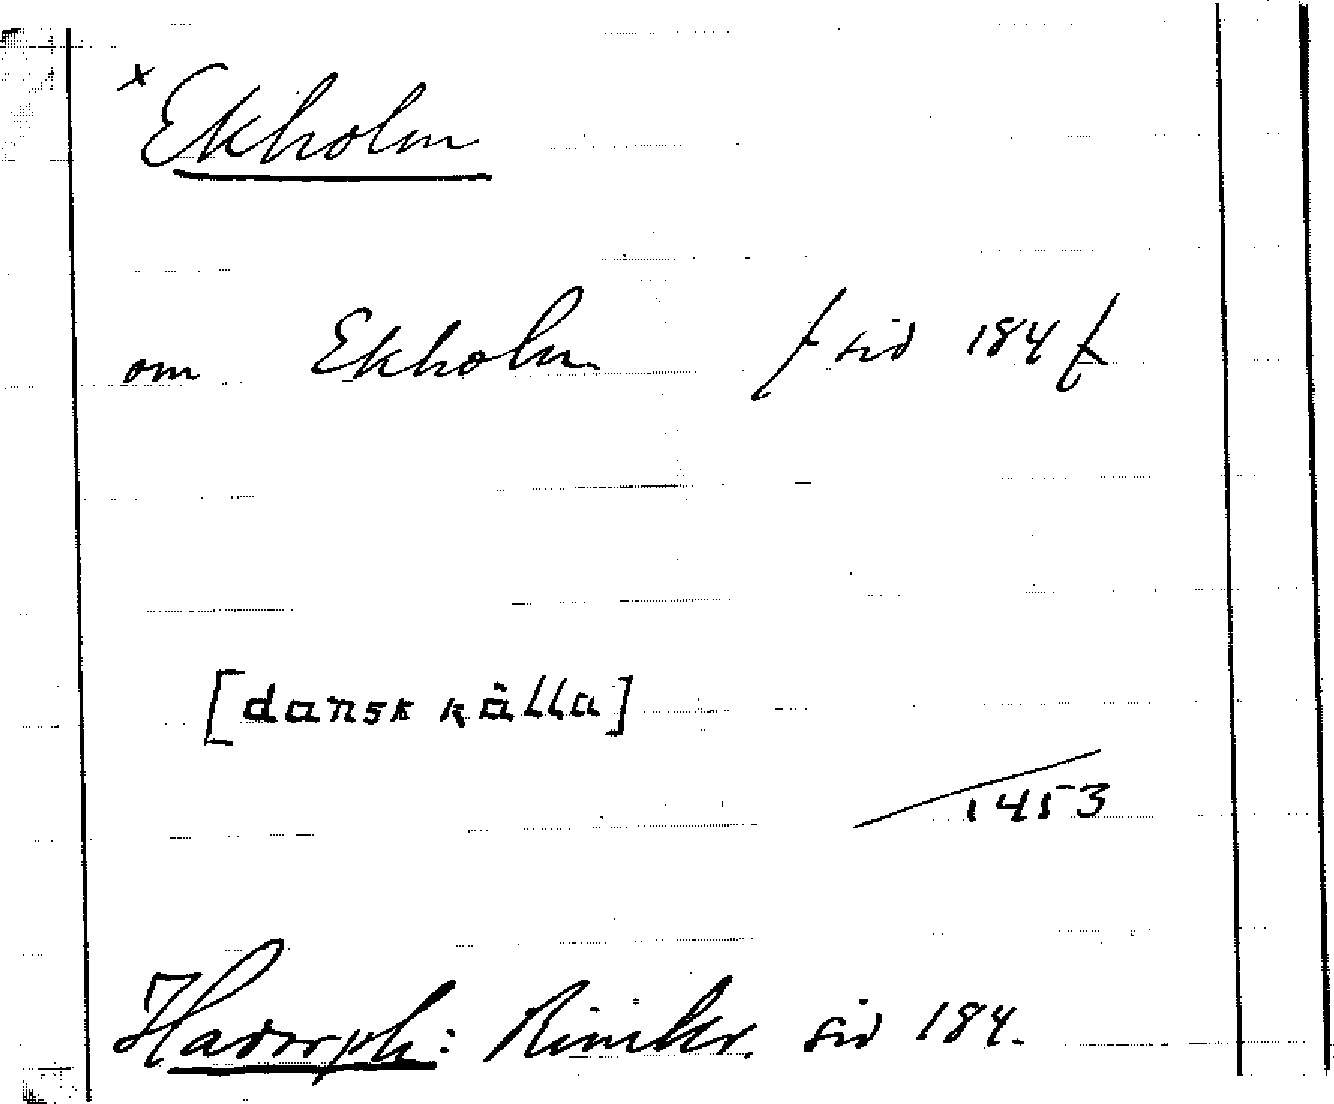 x Ekholm
om Ekholm / sid 184 f
[dansk källa]
1453
Hadorph: Rimkr. sid 184.